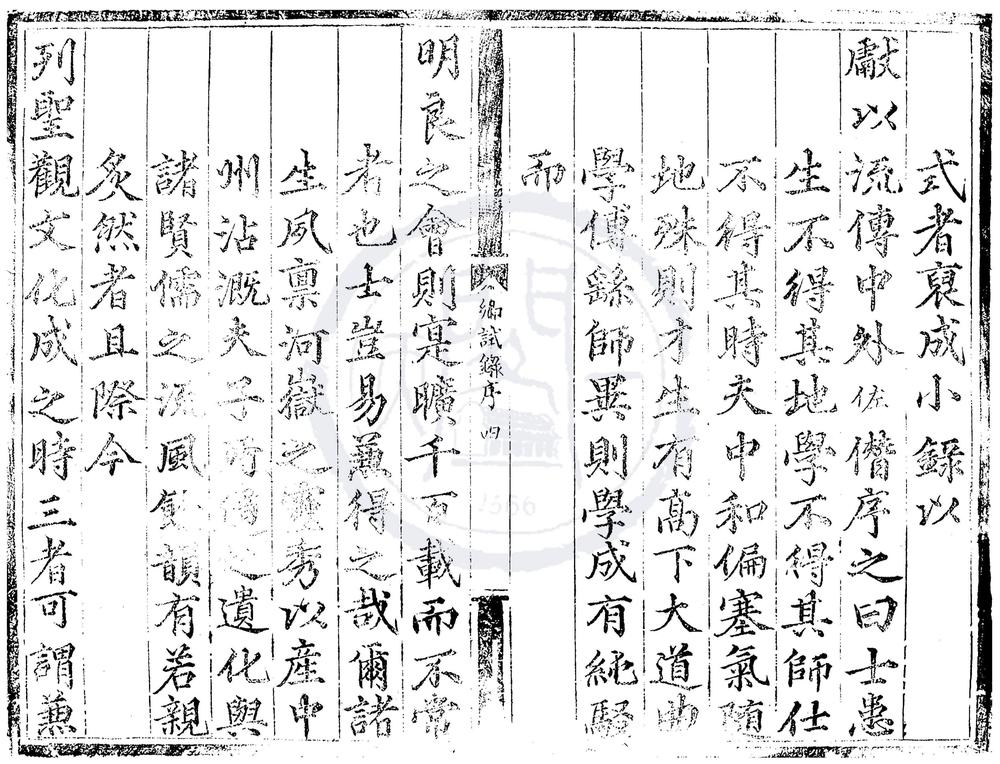 式者裒成小錄以
獻以流傳中外佐僭序之曰士患
生不得其地學不得其師仕
不得其時夫中和偏塞氣随
地殊則才生有髙下大道曲
學傳繇師異則學成有純駁
而
鄉試錄序 四
明良之會則寔曠千百載而不常
者也士豈易兼得之哉爾諸
生夙禀河嶽之靈秀以產中
州沾溉夫子所傳之遺化與
諸賢儒之流風餘韻有若親
炙然者且際今
列聖觀文化成之時三者可謂兼
1566